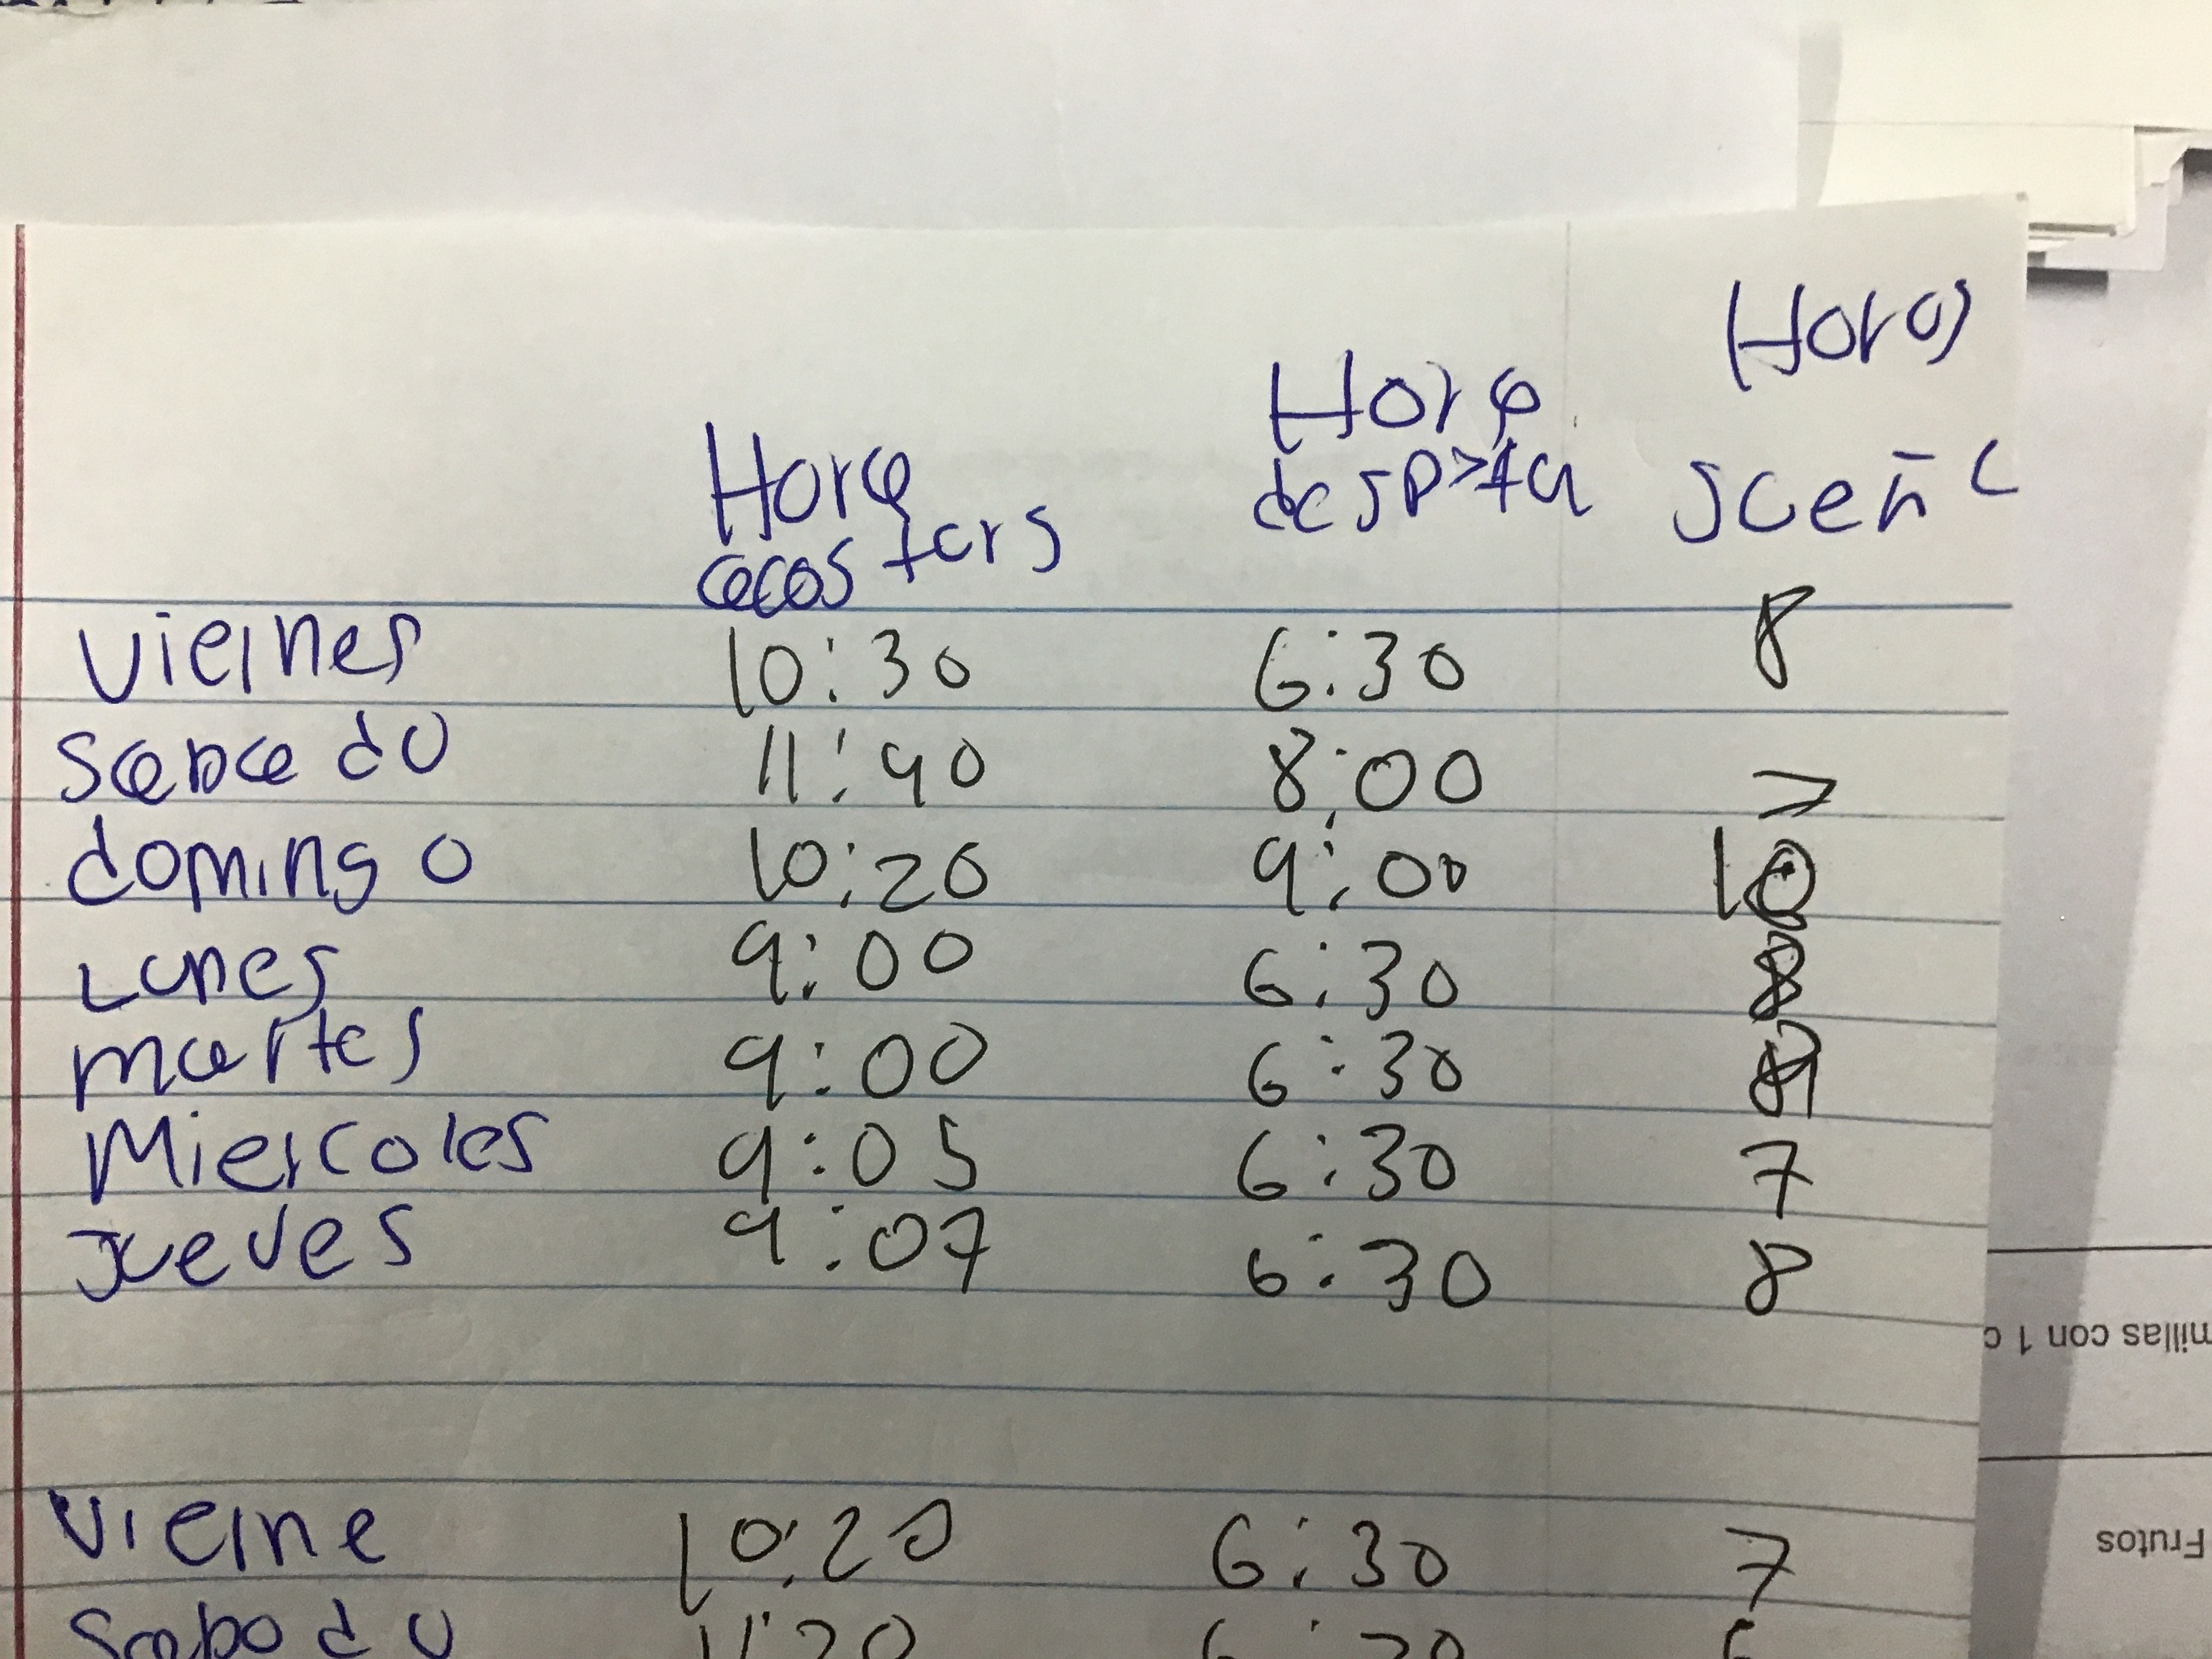 Horas
Hora
Hora despierta sueño
acostars
Viernes 10:30 6:30 8
Sabado 11:40 8:00 7
domingo 10:20 9:00 10
Lunes 9:00 6:30 8
martes 9:00 6:30
Miercoles 9:05 6:30 7
jueves 9:07 6:30 8
millas con 1 c
Vierne 10:20 6:30 7
Frutos
Sabado